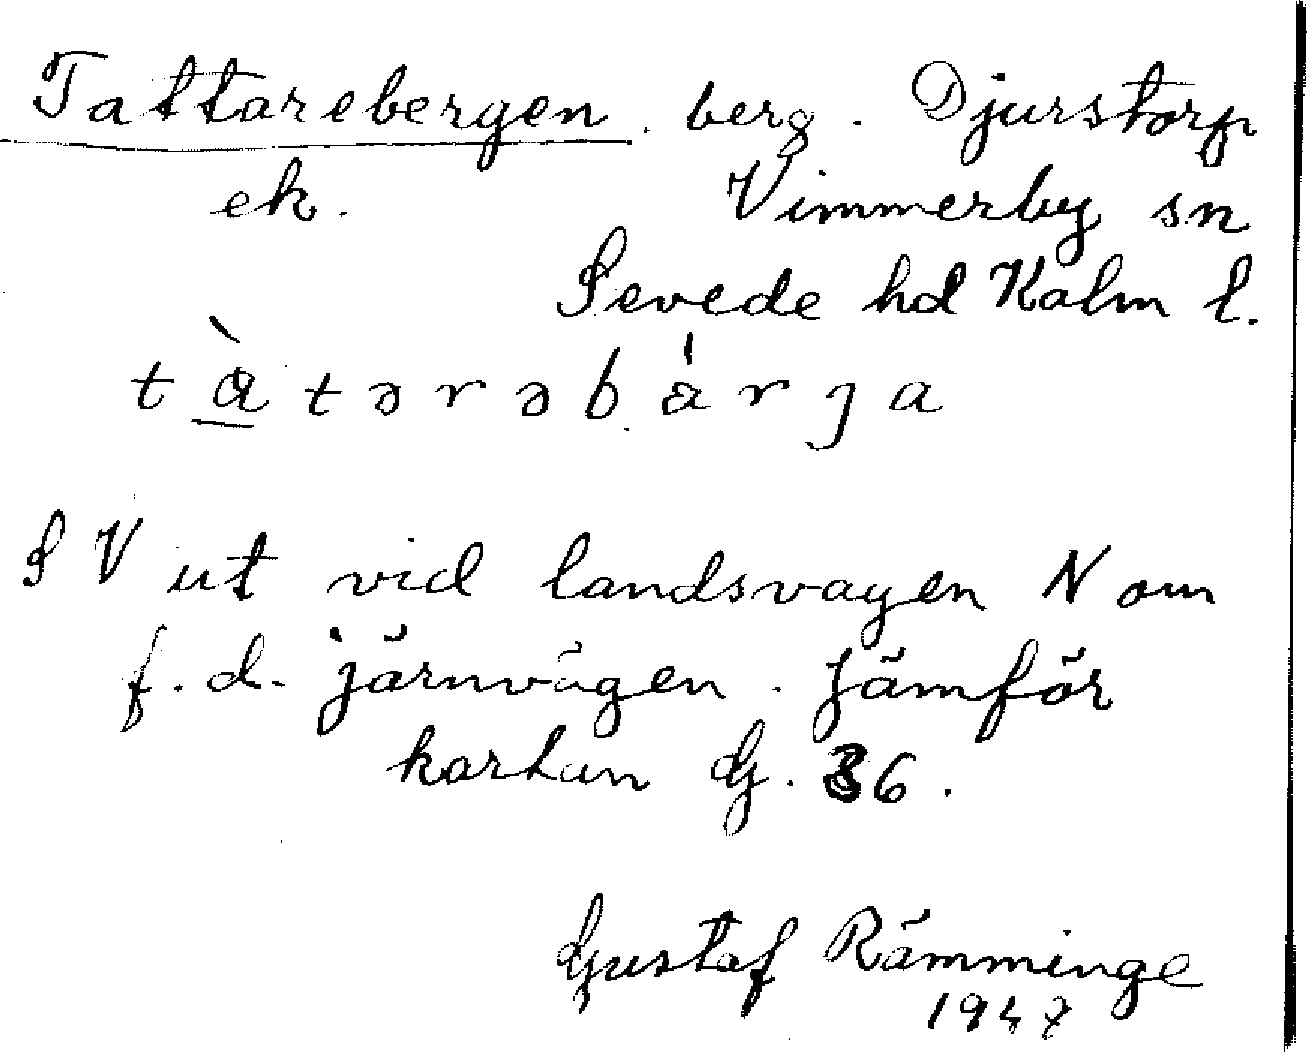 Tattarebergen. berg. Djurstorp
ek. Vimmerby sn
Sevede hd Kalm l.
tàtərəbárja
S V ut vid landsvagen N om
f.d. järnvägen. Jämför
kartan G. 36.
Gustaf Rämminge
1947